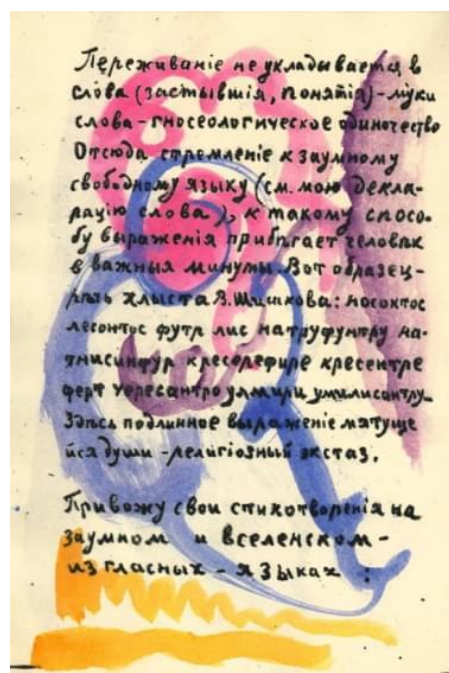 Переживаніе не укладывается в
слова (застывшія, понятія) - муки
слова - гносеологическое одиночество
Отсюда стремленіе к заумному
свободному языку (см. мою декла-
рацію слова), к такому спосо-
бу выраженія прибѣгает человѣк
в важныя минуты. Вот образец-
рѣчь хлыста В. Шишкова: носоктос
лесонтос футр лис натруфунтру на-
тнисинфур кресерефире кресентре
ферт чересантро улмири умилисинтру..
Здѣсь подлинное выраженіе мятуще
йся души - религіозный экстаз.
Привожу свои стихотворенія на
заумном и вселенском -
из гласных - языках :